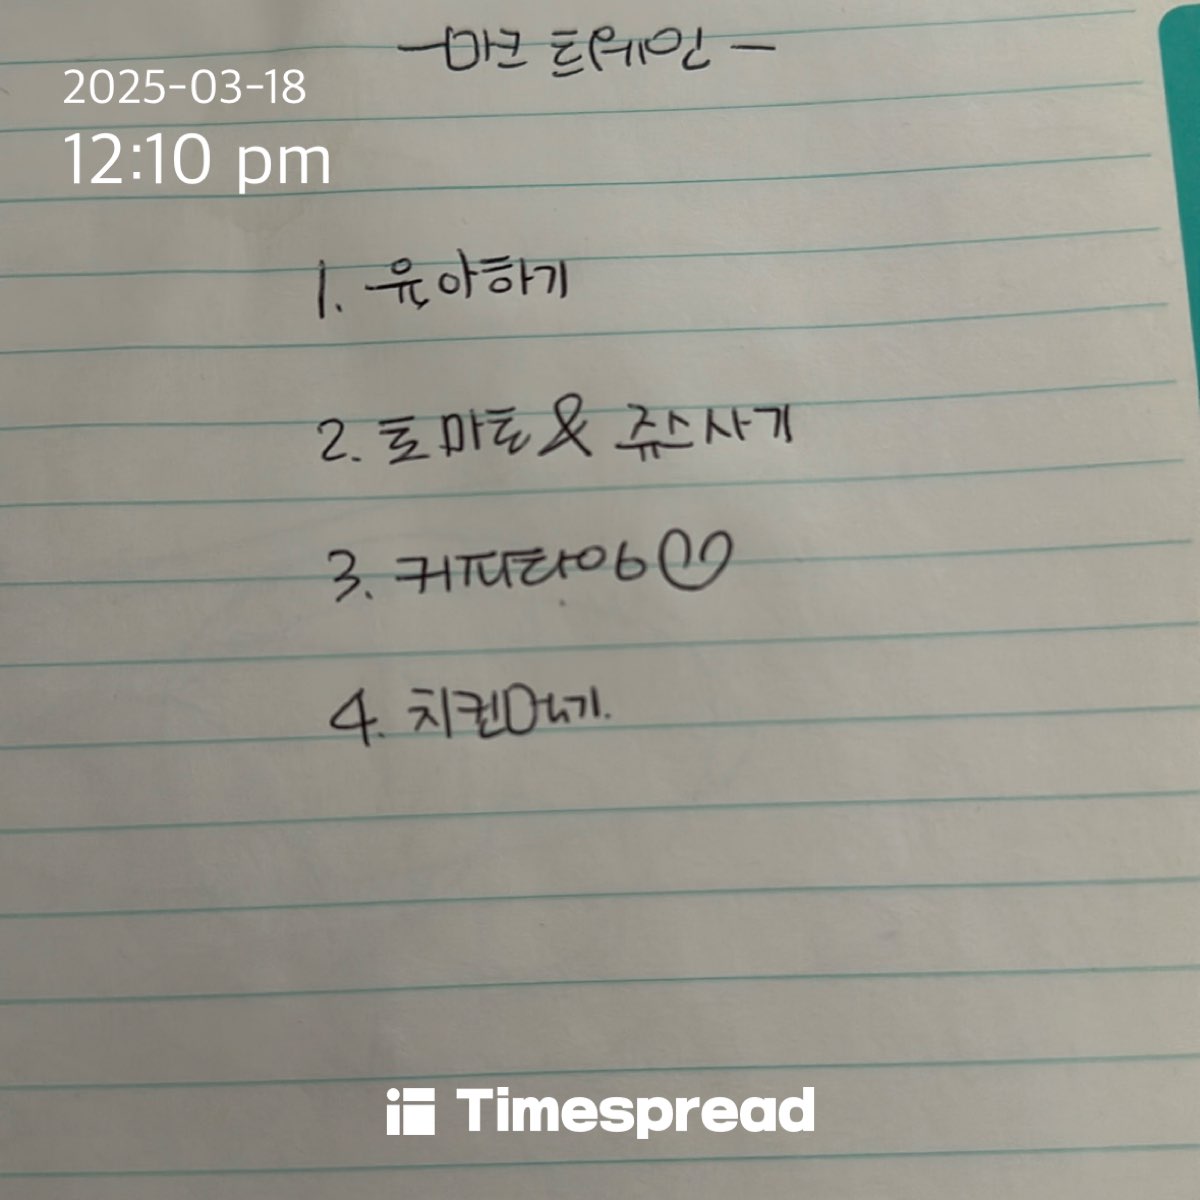 -마크 트웨인-
2025-03-18
12:10 pm
1. 육아하기
2. 토마토 & 쥬스사기
3. 커피타임
4. 치킨먹기.
Timespread